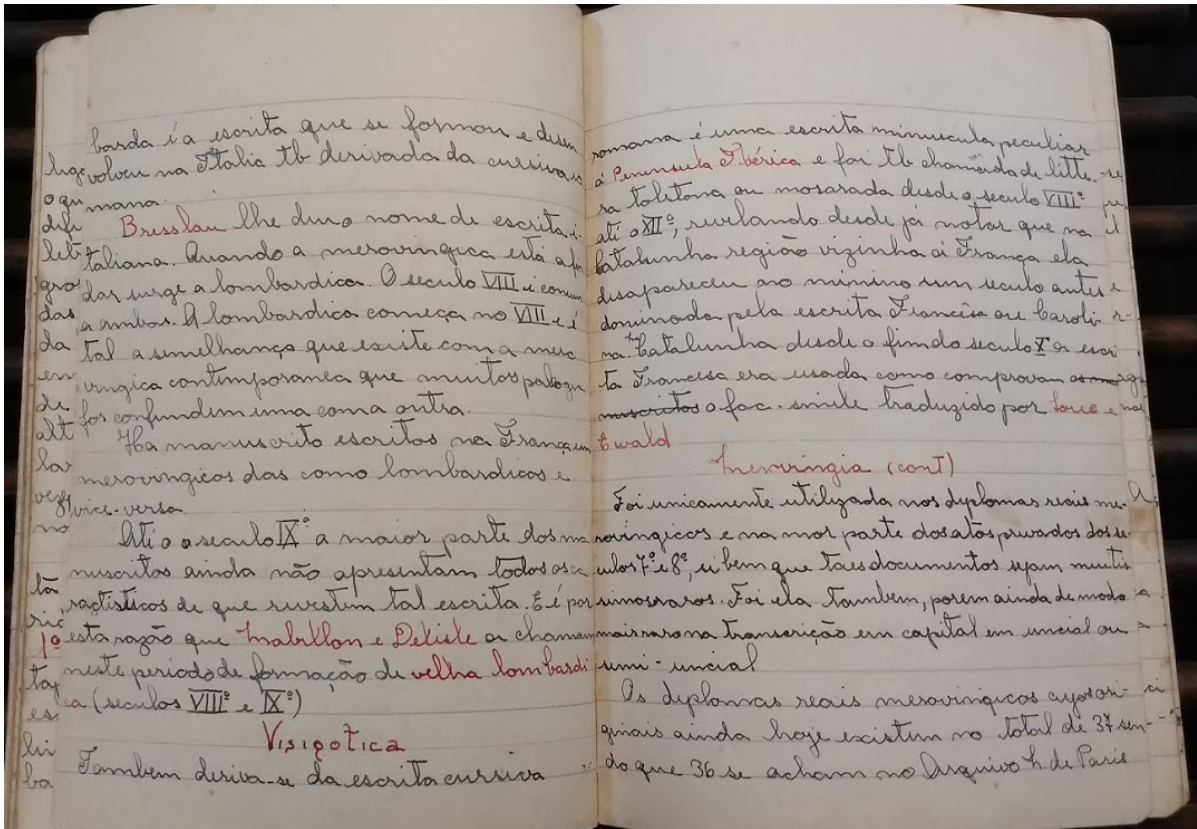 barda é a escrita que se formou e desen
volveu na Italia tb derivada da cursiva ro
mana.
Bresslau lhe deu o nome de escrita i-
taliana. Quando a merovingica está a fin
dar surge a lombardica. O seculo VIII é comum
a ambas. A lombardica começa no VIII e é
tal a semelhança que existe com a mero
vingica contemporanea que muitos paleogra
fos confundem uma com a outra.
Ha manuscrito escritos na França em
merovingicos das como lombardicos e
vice-versa
Até o o seculo IXº a maior parte dos ma
nuscritos ainda não apresentam todos os ca
ractisticos de que revestem tal escrita. E é por
esta razão que Mabillon e Delisle a chamam
neste periodo de formação de velha lombardi
ca (seculos VIIIº e IXº)
Visigotica
Tambem deriva-se da escrita cursiva
romana é uma escrita minuscula peculiar
á Peninsula Ibérica e foi tb chamada de litte-
ra toletana ou mosarada desde o seculo VIIIº
até o XIIº, revelando desde já notar que na
Catalunha região vizinha á França ela
desapareceu no minimo um seculo antes
dominada pela escrita Francêsa ou Caroli-
na Catalunha desde o fim do seculo Xº a escri
ta Francesa era usada como comprovam os ma
nuscritos o fac-simile traduzido por Lowe e
Ewald
Merovingia (cont)
Foi unicamente utilizada nos diplomas reais me-
rovingicos e na mor parte dos atos privados dos se-
culos 7º e 8º, se bem que taes documentos sejam muitis
simos raros. Foi ela tambem, porem ainda de modo
mais raro na transcrição em capital em uncial ou
semi-uncial
Os diplomas reais merovingicos cujos ori-
ginais ainda hoje existem no total de 37 sen-
do que 36 se acham no Arquivo N. de Paris